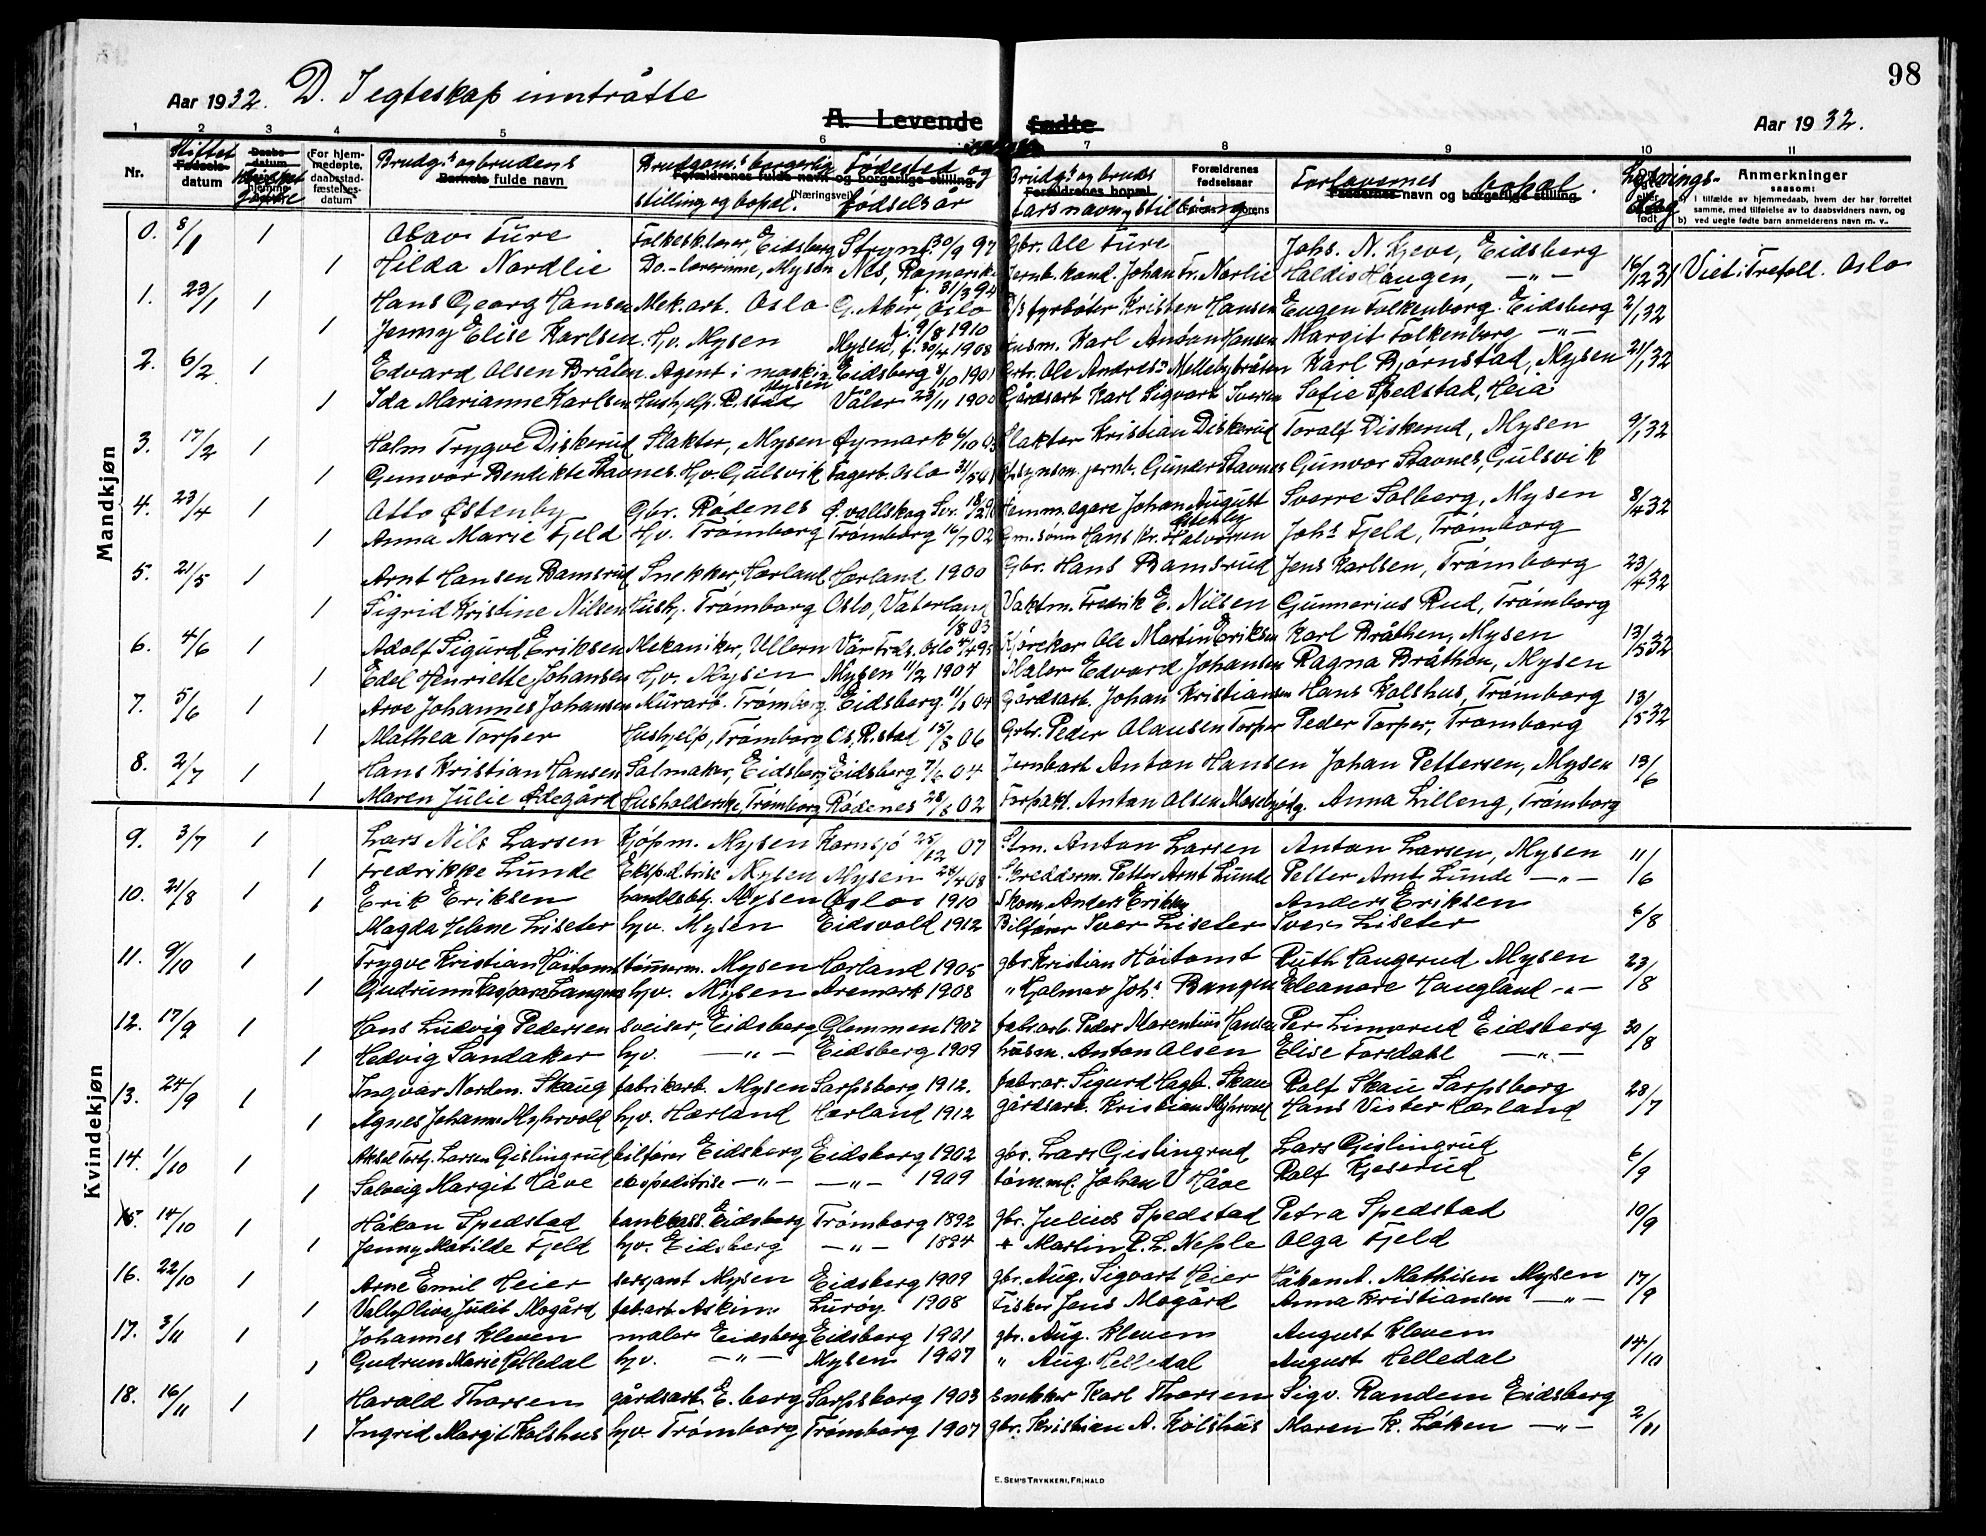 98
Aar 1932. D. I egteskap inntrådte
A. Levende fødte
Aar 1932.
1 2 3 4 5 6 7 8 9 10 11
Nr. Stiftet Fødsels-datum Daabs-datum Ungkar Jomfru (For hjemmedøpte, daabsstadfæstelsesdatum) Brudg.s og brudens Barnets fulde navn Brudgom.s borgerlig stilling og bopæl. Forældrenes fulde navn og borgerlige stilling (Næringsvei) Fødested og fødselsår Brudg.s og bruds fars navn og stilling Forældrenes bopæl Forældrenes fødselsaar Forlovernes bopæl. Faddernes navn og borgerlige stilling Lysnings-dag Anmerkninger
saasom:
a) I tilfælde av hjemmedaab, hvem der har forrettet samme, med tilføielse av to daabsvidners navn, og
b) ved uegte fødte barn anmelderens navn m. v.
Mandkjøn
0. 8/1 1 Olav Ture Folkesk.lærer, Eidsberg Stryn f. 30/9 97 Gbr. Ole Ture Johs. N. Kjeve, Eidsberg 16/12 31 Viet i Trefold. Oslo
1 Hilda Nordlie Do.-lærerinne, Mysen Nes, Romerike f. 31/3 94 Jernb.kond. Johan Fr. Norlie Haldis Haugen, -"-
1. 23/1 1 Hans Georg Hansen Mek.arb. Oslo G. Aker, Oslo f. 9/8 1910 D/s fyrbøter Kristen Hansen Eugen Folkenborg. Eidsberg 2/1 32
1 Jenny Elise Karlsen Hv. Mysen Mysen, f. 30/4 1908 Husm. Karl Anton Hansen Margit Folkenborg -"-
2. 6/2 1 Edvard Olsen Bråten Agent i maskin Mysen Eidsberg 8/10 1901 Gbr. Ole Andres. Mellebybråten Karl Bjørnstad, Mysen 21/1 32
1 Ida Marianne Karlsen Hushjelp. R.stad Våler 23/11 1900 Gårdsarb. Karl Sigvart Iversen Sofie Spedstad, Heia
3. 17/2 1 Holm Trygve Diskerud Slakter, Mysen Øymark 6/10 03 Slakter Kristian Diskerud Toralf Diskerud, Mysen 9/1 32
1 Gunvor Bendikte Stavnes Hv. Gulsvik Fagerb. Oslo 31/5 Opsynsm. jernb. Gunder Stavnes Gunvor Stavnes, Gulsvik
4. 23/4 1 Otto Østenby Gbr. Rødenes Ø. vallskog Sv. 18/2 Hemm.egare Johan August Østenby Sverre Solberg, Mysen 8/4 32
1 Anna Marie Fjeld Hv. Trømborg Trømborg 16/7 02 Gm.sønn Hans Kr. Halvorsen Johs. Fjeld, Trømborg
5. 21/5 1 Arnt Hansen Ramsrud Snekker, Hærland Hærland 1900 Gbr. Hans Ramsrud Jens Karlsen, Trømborg 23/4 32
1 Sigrid Kristine Nilsen Hushj. Trømborg Oslo, Vaterland 1/8 03 Vaktm. Fredrik E. Nilsen Gunnerius Rud, Trømborg
6. 4/6 1 Adolf Sigurd Eriksen Mekaniker, Ullern Vår Frels. Oslo 4/4 95 Kjørekar Ole Martin Eriksen Karl Bråthen, Mysen 13/5 32
1 Edel Henriette Johansen Hv. Mysen Mysen 11/2 1907 Maler Edvard Johansen Ragna Bråthen, Mysen
7. 5/6 1 Arve Johannes Johansen Murarb. Trømborg Eidsberg 11/1 04 Gårdsarb. Johan Kristiansen Hans Kolshus, Trømborg 13/5 32
1 Mathea Torper Hushjelp, Trømborg Os, R.stad 15/8 06 Gbr. Peder Olausen Torper Peder Torper, Trømborg
8. 2/7 1 Hans Kristian Hansen Salmaker, Eidsberg Eidsberg 7/6 04 Jernbarb. Anton Hansen Johan Pettersen, Mysen 13/6
1 Maren Julie Ødegård Husholderske, Trømborg Rødenes 28/8 02 Forpakt. Anton Olsen Mosebyødg. Anna Lilleng, Trømborg
Kvindekjøn
9. 3/7 1 Lars Nils Larsen Kjøpm. Mysen Kornsjø 25/12 07 Stm. Anton Larsen Anton Larsen, Mysen 11/6
1 Fredrikke Lunde Ekspeditrise Mysen Mysen 28/4 08 Skredderm. Petter Arnt Lunde Petter Arnt Lunde -"-
10. 21/8 1 1 Erik Eriksen handlsbtj. Mysen Oslo 1910 Skom. Anders Eriksen Anders Eriksen 6/8
Magda Helene Liseter hv. Mysen Eidsvold 1912 Bilfører Iver Liseter Iver Liseter
11. 9/10 1 Trygve Kristian Høitomt tømmerm. Mysen Hærland 1905 gbr. Kristian Høitomt Ruth Haugerud Mysen 23/8
1 Gudrunn Kaspara Bangen hv. Mysen Aremark 1908 " Hjalmar Johs. Bangen Eleanore Haugland -"-
12. 17/9 1 Hans Ludvig Pedersen sveiser, Eidsberg Glemmen 1907 fabr.arb. Peder Marentius Hansen Per Limerud Eidsberg 30/8
1 Hedvig Sandaker hv. -"- Eidsberg 1909 husm. Anton Olsen Elise Torsdahl -"-
13. 24/9 1 Ingvar Norden. Skaug fabrikarb. Mysen Sarpsborg 1912. fabr.ar. Sigurd Hagb. Skau Rolf Skau Sarpsborg 28/7
1 Agnes Johanne Myhrvold hv. Hærland Hærland 1912 gårdsarb. Kristian Myhrvold Hans Vister Hærland
14. 1/10 1 Aksel Torbj. Larsen Gislingrud bilfører Eidsberg Eidsberg 1902 gbr. Lars Gislingrud Lars Gislingrud 6/9
1 Solveig Margit Håve ekspeditrise -"- -"- 1909 tømml. Johan U Håve Rolf Kjeserud
15. 14/10 1 Håkon Spedstad bankkass. Eidsberg Trømborg 1892 gbr. Julius Spedstad Petra Spedstad 10/9
1 Jenny Matilde Fjeld hv. Eidsberg -"- 1894 " Martin P. L. Neple Olga Fjeld
16. 22/10 1 Arne Emil Heier sersjant Mysen Eidsberg 1909 gbr. Aug. Sigvart Heier Håkon A. Mathisen Mysen 17/9
1 Vally Oliva Judit Mogård fab.arb. Askim Lurøy 1908 Fisker Jens Mogård Anna Kristiansen -"-
17. 3/11 1 Johannes Kleven maler Eidsberg Eidsberg 1901 gbr. Aug. Klevem August Klevem 14/10
1 Gudrun Marie Helledal hv. -"- Mysen 1907 " Aug. Helledal August Helledal
18. 16/11 1 Harald Thorsen gårdsarb. E.berg Sarpsborg 1903 snekker Karl Thorsen Sigv. Randem Eidsberg 2/11
1 Ingrid Margit Kolshus hv. Trømborg Trømborg 1907 gbr. Kristian A. Kolshus Maren K. Løken -"-
E. SEM'S TRYKKERI, FR.HALD